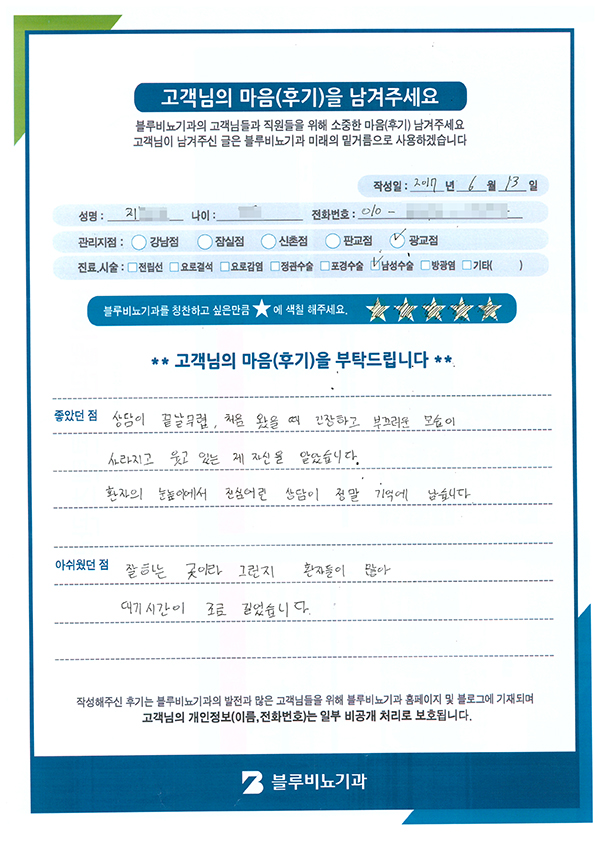 고객님의 마음(후기)을 남겨주세요
블루비뇨기과의 고객님들과 직원들을 위해 소중한 마음(후기) 남겨주세요
고객님이 남겨주신 글은 블루비뇨기과 미래의 밑거름으로 사용하겠습니다
작성일 : 2017 년 6 월 13 일
성명 : 지 나이 : 전화번호 : 010 -
관리지점 : 강남점 잠실점 신촌점 판교점 광교점
진료.시술 : 전립선 요로결석 요로감염 정관수술 포경수술 남성수술 방광염 기타( )
블루비뇨기과를 칭찬하고 싶은만큼 ★에 색칠 해주세요.
** 고객님의 마음(후기)을 부탁드립니다 **
좋았던 점 상담이 끝날무렵, 처음 왔을 때 긴장하고 부끄러운 모습이
사라지고 웃고 있는 제 자신을 알았습니다.
환자의 눈높이에서 진심어린 상담이 정말 기억에 남습니다
아쉬웠던 점 잘하는 곳이라 그런지 환자들이 많아
대기시간이 조금 길었습니다.
작성해주신 후기는 블루비뇨기과의 발전과 많은 고객님들을 위해 블루비뇨기과 홈페이지 및 블로그에 기재되며
고객님의 개인정보(이름,전화번호)는 일부 비공개 처리로 보호됩니다.
블루비뇨기과